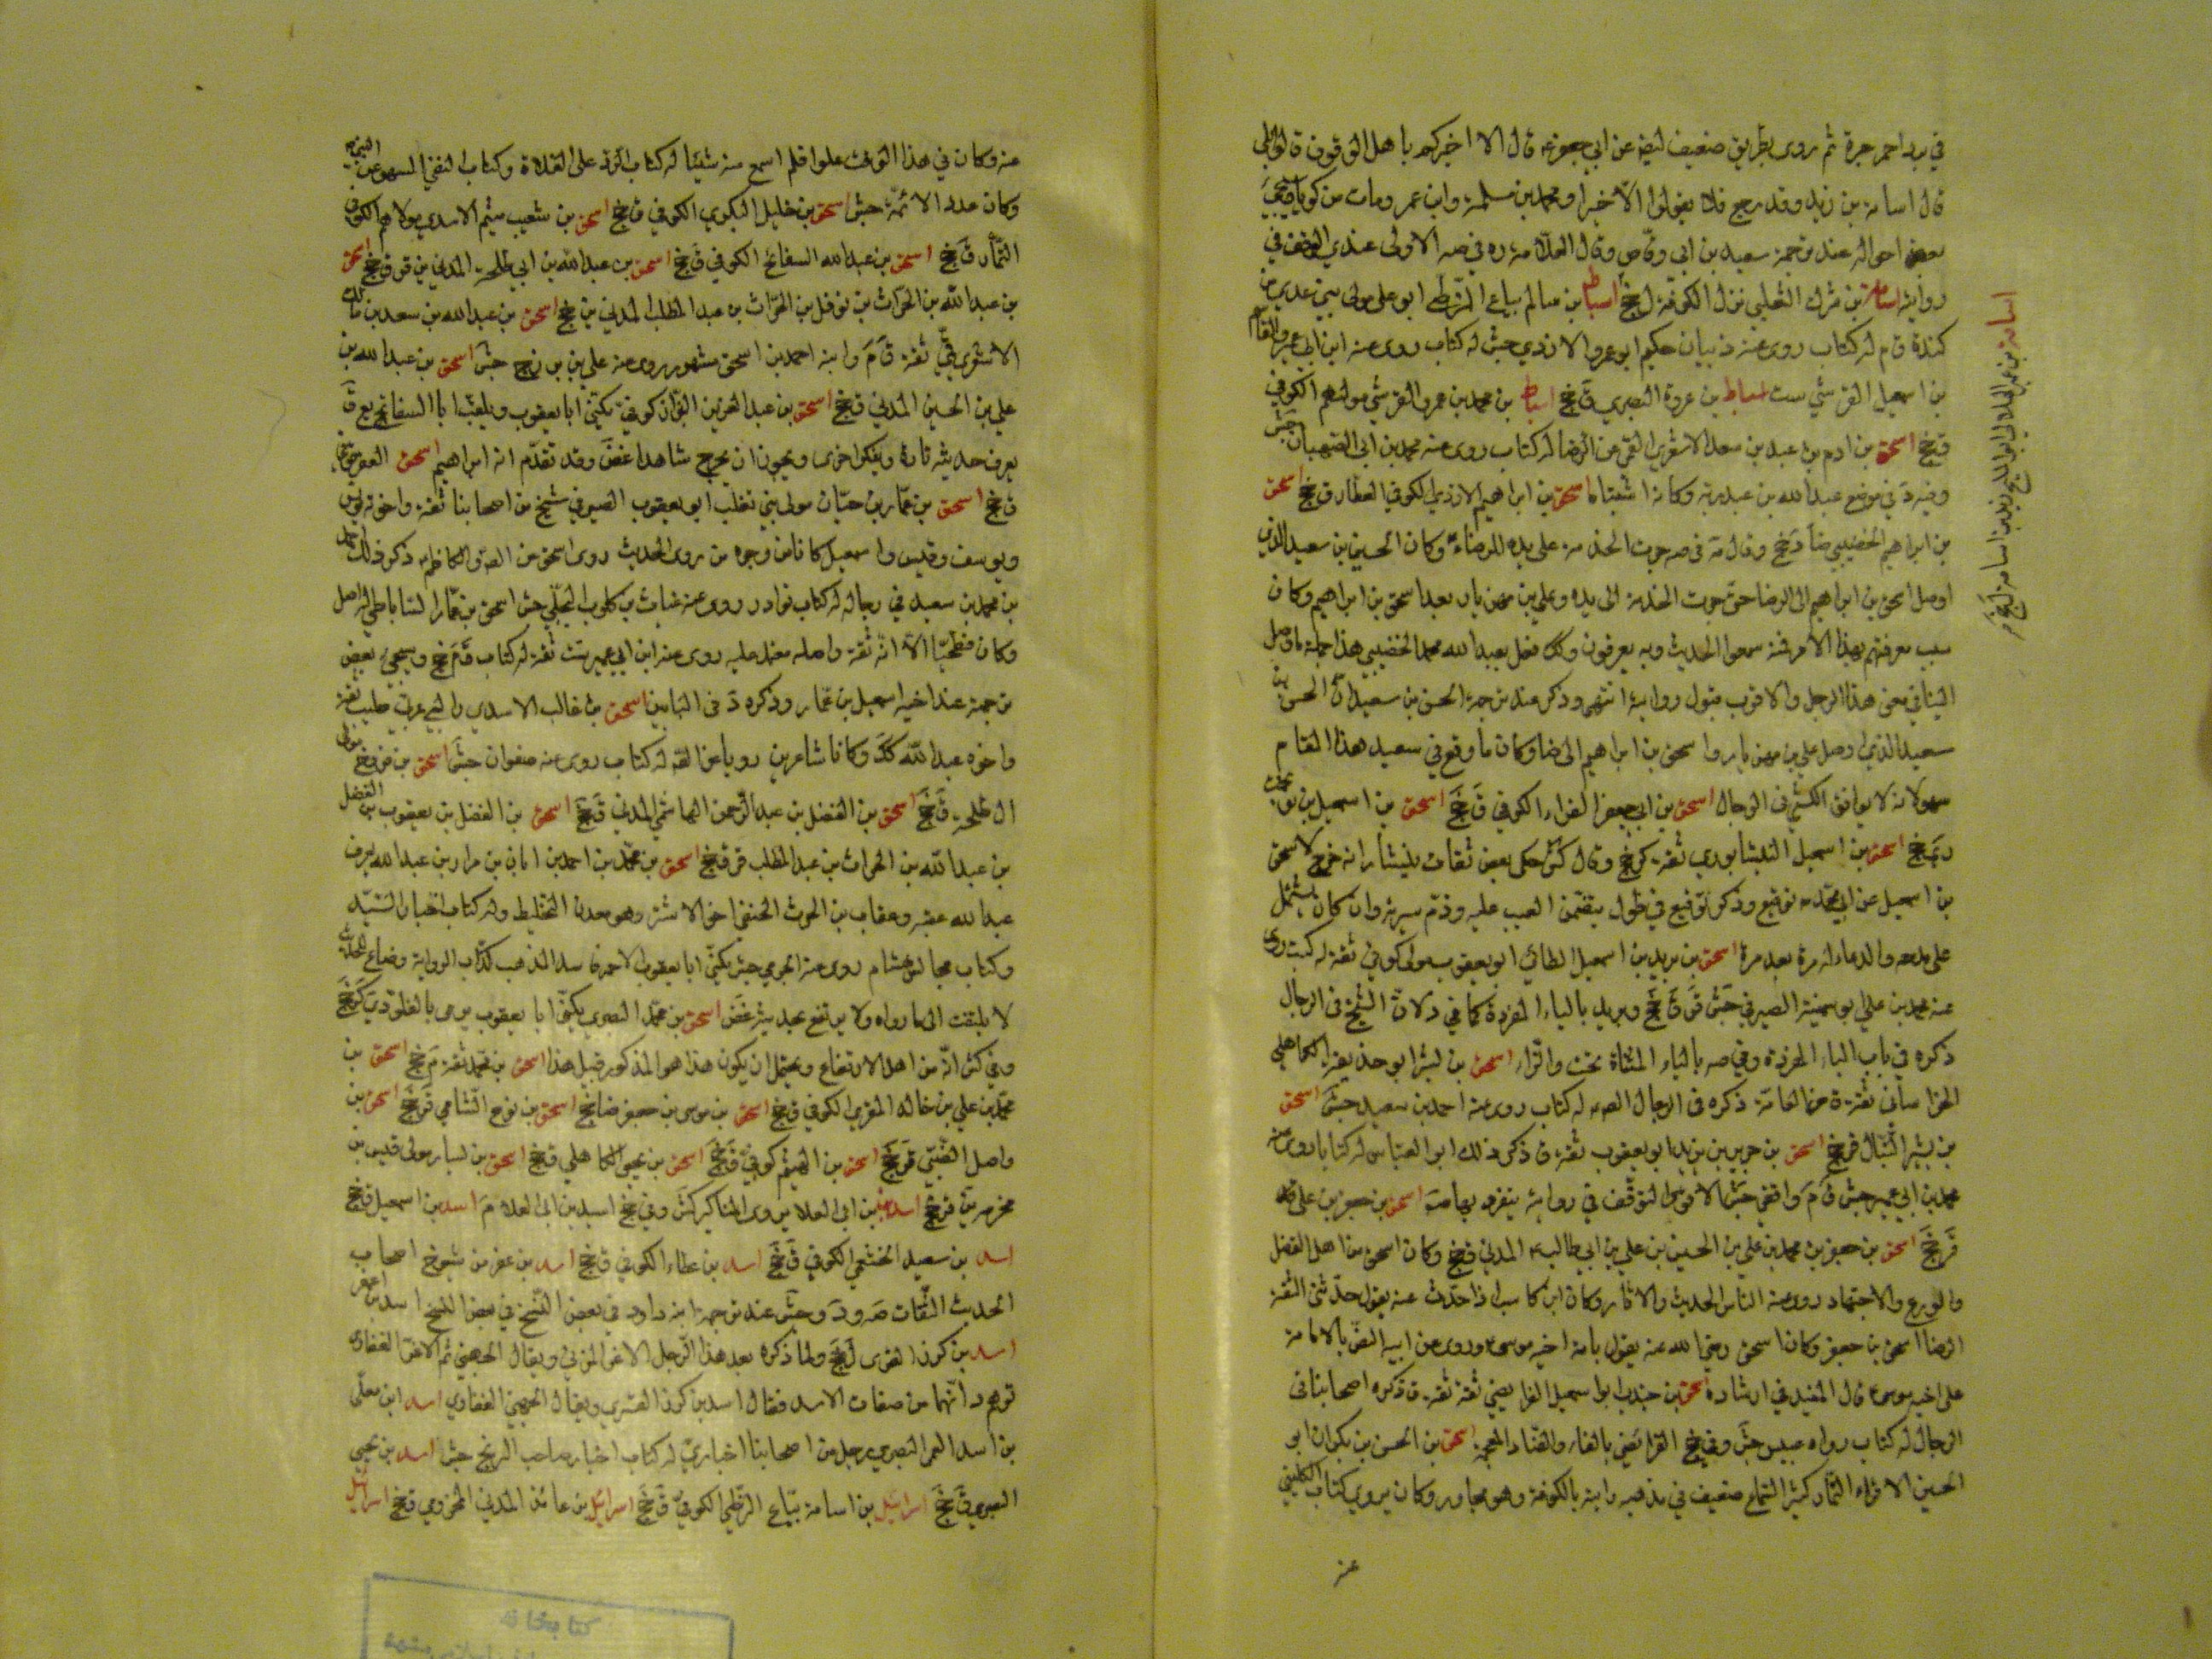 في برد احمر حبرة ثم روى بطريق ضعيف ايضا عن ابي جعفر ع قال الا اخبركم باهل الوقوف قالوا بلى
قال اسامة بن زيد وقد رجع فلا تقولوا الا خيرا ومحمد بن مسلمة وابن عمر ومات من كويا ويجئ
بعض احواله عند ترجمة سعيد بن ابي وقاص وقال العلامة ره في صه الاولى عندي التوقف في
روايته اسامة بن شرك الثعلبي نزل الكوفة ل جخ اسباط بن سالم بياع الزطي ابو علي مولى بني عدي من
كندة ق م له كتاب روى عنه ذبيان حكيم ابو عمرو الازدي جش له كتاب روى عنه ابن ابي عمير والقاسم
بن اسمعيل القرشي ست اسباط بن عروة البصري ق جخ اسباط بن محمد بن عمرو القرشي مولاهم الكوفي
ق جخ اسحق بن ادم بن عبد بن سعد الاشعري القمي عن الرضا له كتاب روى عنه محمد بن ابي الصهبان جش
وفيه في موضع عبد الله بن عبد ربه وكانا اسحق بن ابراهيم الازدي الكوفي العطار ق جخ اسحق
بن ابراهيم الحضيني ضا د جخ وقال في صه جرت الخدمة على يده للرضا ع وكان الحسين بن سعيد الذي
اوصل اسحق بن ابراهيم الى الرضا حتى جرت الخدمة الى يده وعلي بن مهزيار بعد اسحق بن ابراهيم وكان
سبب معرفتهم بهذا الامر فمنه سمعوا الحديث وبه يعرفون وكك فعل بعبد الله محمد الحضيني هذا جملة ما وصل
الينا في معنى هذا الرجل والاقرب قبول روايته انتهى وذكر عند ترجمة الحسن بن سعيد ان الحسن بن
سعيد الذي اوصل علي بن مهزيار واسحق بن ابراهيم الى الرضا وكان ما وقع في سعيد هذا المقام
سهو لانه لا يوافق الكشي في الرجال اسحق بن ابي جعفر الفراء الكوفي ق جخ اسحق بن اسمعيل بن نوبخت
دي جخ اسحق بن اسمعيل النيشابوري ثقة كر جخ وقال كش حكى بعض ثقات بنيشابور انه خرج لاسحق
بن اسمعيل عن ابي محمد ع توقيع وذكر توقيع في طول يتضمن العيب عليه وذم سيرته وان كان يشتمل
على مدحه والدعاء له مرة بعد مرة اسحق بن بريد بن اسمعيل الطائي ابو يعقوب مولى كوفي ثقة له كتب روى
عنه محمد بن علي ابو سمينة الصيرفي جش قر ق جخ وبريد بالباء المفردة كما في د لان الشيخ في الرجال
ذكره في باب الباء المفردة وفي صه بالياء المثناة تحت والزاء اسحق بن بشر ابو حذيفة الكاهلي
الخراساني ثقة ق من العامة ذكره في الرجال الصه له كتاب روى عنه احمد بن سعيد جش اسحق
بن بشير النبال قر جخ اسحق بن جرير بن يزيد ابو يعقوب ثقة ق ذكر ذلك ابو العباس له كتاب روى عنه
محمد بن ابي عمير جش ق م واقفي جخ الاقوى التوقف في رواية ينفرد بها صه اسحق بن جعفر بن علي
ق جخ اسحق بن جعفر بن محمد بن علي بن الحسين بن علي بن ابي طالب ع المدني ق جخ وكان اسحق من اهل الفضل
والورع والاجتهاد روى عنه الناس الحديث والاثار وكان ابن كاسب اذا حدث عنه يقول حدثني الثقة
الرضا اسحق بن جعفر وكان اسحق رضي الله عنه يقول بامامة اخيه موسى ع وروى عن ابيه النص بالامامة
على اخيه موسى ع قال المفيد في ارشاده اسحق بن جندب ابو اسمعيل الفرايضي ثقة ثقة ق ذكره اصحابنا في
الرجال له كتاب رواه عبيس جش وفي جخ الفرايضي بالفاء والضاد المعجمة اسحق بن الحسن بن بكران ابو
الحسين الاقراء التمار كثير السماع ضعيف في مذهبه رايته بالكوفة وهو مجاور وكان يروي كتاب الكليني
عنه
اسامة بن عمير الهذلي ابو المليح زيد بن اسامة ل جخ
عنه وكان في هذا الوقت علوا فلم اسمع منه شيئا له كتاب الرد على الغلاة وكتاب النفي السهو عن النبي ص
وكان عدد الائمة جش اسحق بن خليل البكري الكوفي ق جخ اسحق بن شعيب ميثم الاسدي مولاهم الكوفي
التمار ق جخ اسحق بن عبد الله السفاتج الكوفي ق جخ اسحق بن عبد الله بن ابي طلحة المدني ين قر ق جخ اسحق
بن عبد الله بن الحراث بن نوفل بن الحراث بن عبد المطلب المدني ين جخ اسحق بن عبد الله بن سعد بن مالك
الاشعري قمي ثقة ق م وابنه احمد بن اسحق مشهور روى عنه علي بن بزرج جش اسحق بن عبد الله بن
علي بن الحسين المدني ق جخ اسحق بن عبد العزيز البزاز كوفي يكنى ابا يعقوب ويلقب ابا السفاتج يع ق
يعرف حديثه تارة وينكر اخرى ويجوز ان يخرج شاهدا غض وقد تقدم انه ابراهيم اسحق العقرقوفي
ق جخ اسحق بن عمار بن حيان مولى بني تغلب ابو يعقوب الصيرفي شيخ من اصحابنا ثقة واخوته يونس
ويوسف وقيس واسمعيل كانا من وجوه من روى الحديث روى اسحق عن الصه والكاظم ع ذكر ذلك احمد
بن محمد بن سعيد في رجاله له كتاب نوادر روى عنه غياث بن كلوب البجلي جش اسحق بن عمار الساباطي له اصل
وكان فطحيا الا انه ثقة واصله معتمد عليه روى عنه ابن ابي عمير ست ثقة له كتاب ق م جخ وسيجئ بعض
ترجمة عند اخيه اسمعيل بن عمار وذكره د في البابين اسحق بن غالب الاسدي والبي عربي صليب ثقة
واخوه عبد الله كك وكانا شاعرين رويا عن الصه له كتاب روى عنه صفوان جش اسحق بن فروخ مولى
ال طلحة ق جخ اسحق بن الفضل بن عبد الرحمن الهاشمي المدني ق جخ اسحق بن الفضل بن يعقوب بن الفضل
بن عبد الله بن الحراث بن عبد المطلب قر ق جخ اسحق بن محمد بن احمد بن ابان بن مرار بن عبد الله يعرف
عبد الله عقبه وعقاب بن الحرث الحنفي اخي الاشتر وهو معدن التخليط وله كتاب اخبار السيد
وكتاب مجالس هشام روى عنه الجرمي جش يكنى ابا يعقوب الاحمر فاسد المذهب كذاب الرواية وضاع للحديث
لا يلتفت الى ما رواه ولا يرتفع بحديثه غض اسحق بن محمد البصري يكنى ابا يعقوب يرمى بالغلو دي كر جخ
وفي كش انه من اهل الارتفاع ويحتمل ان يكون هذا هو المذكور قبيل هذا اسحق بن محمد ثقة م جخ اسحق بن
محمد بن علي بن خالد المقري الكوفي ق جخ اسحق بن موسى بن جعفر ضا جخ اسحق بن نوح الشامي قر جخ اسحق بن
واصل الضبي قر جخ اسحق بن الهيثم كوفي ق جخ اسحق بن يحيى الكاهلي ق جخ اسحق بن يسار مولى قيس بن
مخرمه ين قر جخ اسد بن ابي العلا يروى المناكير كش وفي جخ اسيد بن ابي العلا م اسد بن اسمعيل ق جخ
اسد بن سعيد الخثعمي الكوفي ق جخ اسد بن عطاء الكوفي ق جخ اسد بن عفر من شيوخ اصحاب
الحديث الثقات صه و د وجش عند ترجمة ابنه داود في بعض النسخ في بعض النسخ اسد بن اعفر
اسد بن كرز القسري ل جخ ولما ذكره بعد هذا الرجل الاغر المزني ويقال الجهني ثم الاغر الغفاري
توهم د انهما من صفات الاسد فقال اسد بن كرز القسري ويقال الجهني الغفاري اسد ابن معلى
بن اسد العمي البصري رجل من اصحابنا اخباري له كتاب اخبار صاحب الزنج جش اسد بن يحيى
البصري ق جخ اسرائيل بن اسامة بياع الزطي الكوفي ق جخ اسرائيل بن عائذ المدني المخزومي ق جخ اسرائيل
كتابخانه